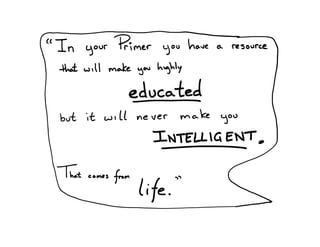 “In your Primer you have a resource
that will make you highly
educated
but it will never make you
INTELLIGENT.
That comes from
life.”